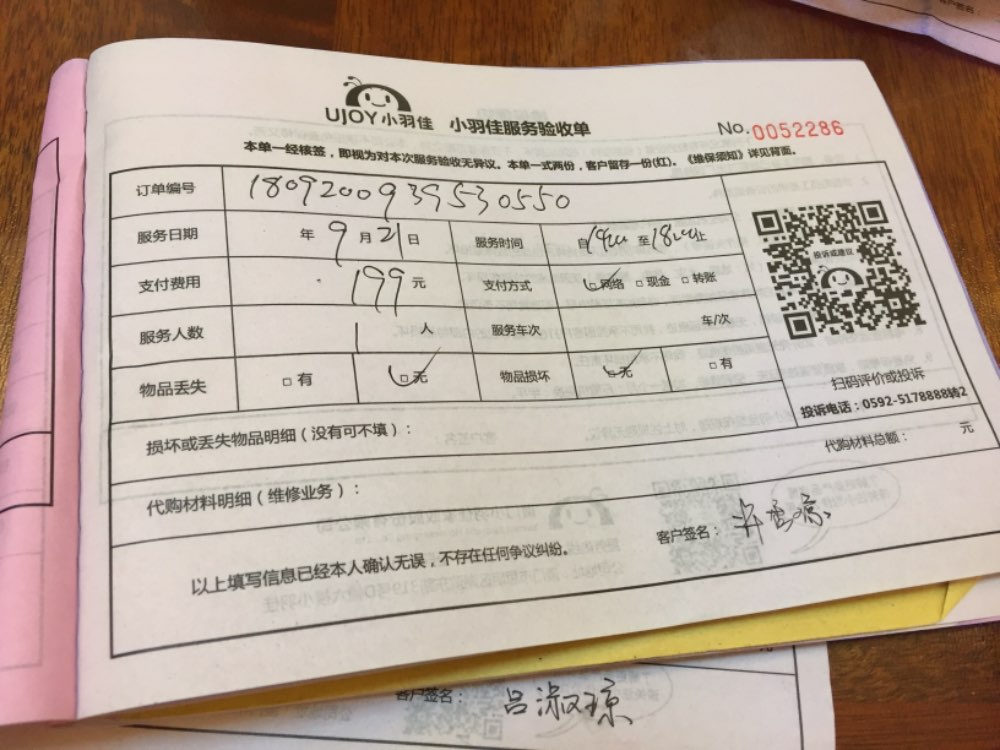 UJOY小羽佳 小羽佳服务验收单
No.0052286
本单一经核签，即视为对本次服务验收无异议。本单一式两份，客户留存一份(红)。《维保须知》详见背面。
订单编号 1809200939530550
服务日期 年 9 月 21 日 服务时间 自 至 止
支付费用 199 元 支付方式 网络 现金 转账
服务人数 1 人 服务车次 车/次
物品丢失 有 无 物品损坏 无 有
投诉或建议
扫码评价或投诉
投诉电话：0592-5178888转2
损坏或丢失物品明细(没有可不填)：
代购材料总额： 元
代购材料明细(维修业务)：
以上填写信息已经本人确认无误，不存在任何争议纠纷。
客户签名：
客户签名： 吕淑琼